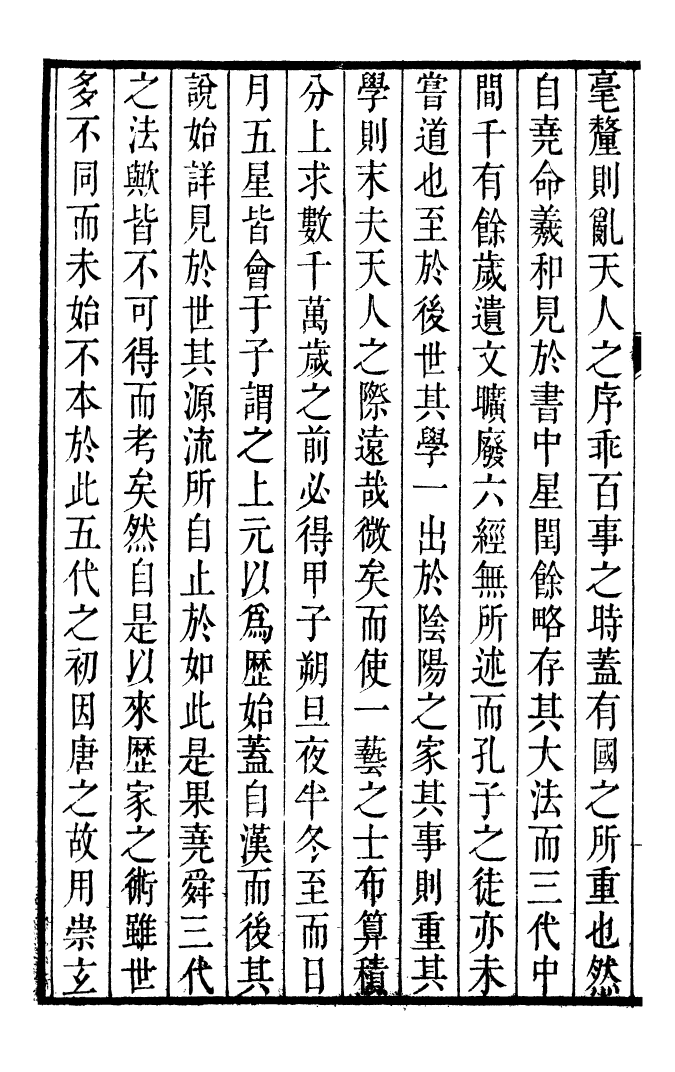 毫釐則亂天人之序乖百事之時蓋有國之所重也然
自堯命羲和見於書中星閏餘略存其大法而三代中
間千有餘歲遺文曠廢六經無所述而孔子之徒亦未
嘗道也至於後世其學一出於陰陽之家其事則重其
學則末夫天人之際遠哉微矣而使一藝之士布算積
分上求數千萬歲之前必得甲子朔旦夜半冬至而日
月五星皆會于子謂之上元以爲歷始蓋自漢而後其
說始詳見於世其源流所自止於如此是果堯舜三代
之法歟皆不可得而考矣然自是以來歷家之術雖世
多不同而未始不本於此五代之初因唐之故用崇玄